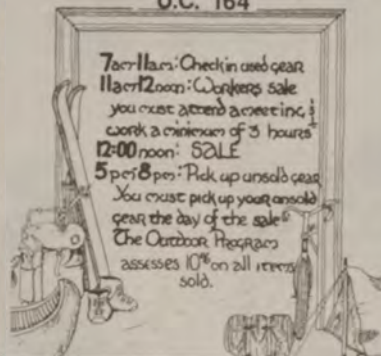 U.C. 164
7am-11am: Check in used gear
11am-12noon: Workers sale
you must attend a meeting &
work a minimum of 3 hours
12:00 noon: SALE
5pm-8pm: Pick up unsold gear
You must pick up your unsold
gear the day of the sale
The Outdoor Program
assesses 10% on all items
sold.